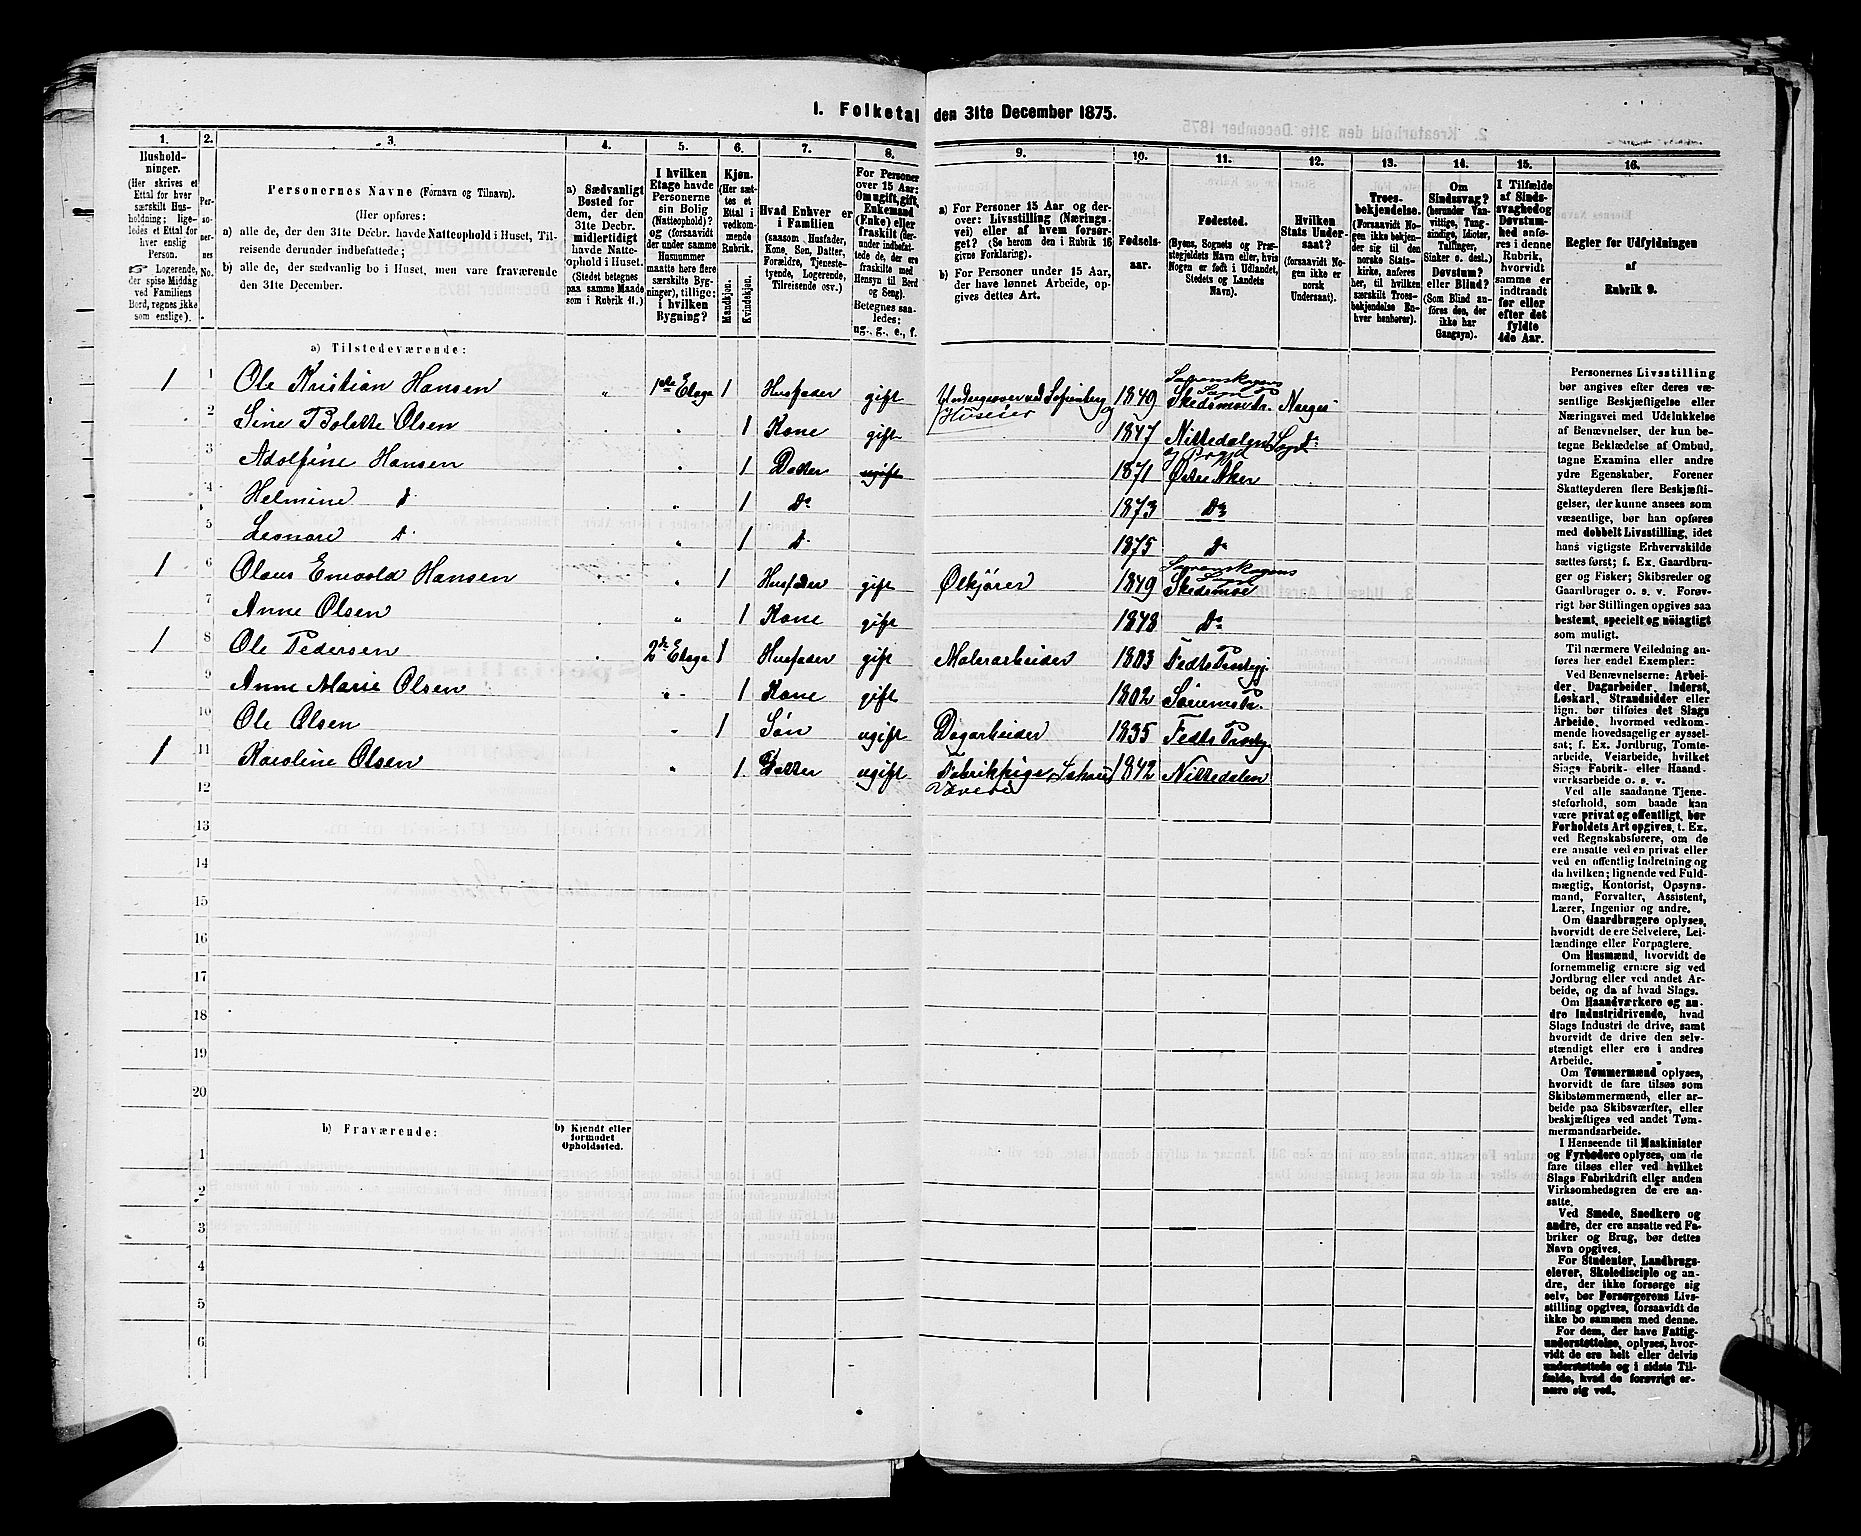 1. Folketal den 31te December 1875.
1.
Hushold-
ninger.
(Her skrives et
Ettal for hver
særskilt Hus-
holdning; lige-
ledes et Ettal for
hver enslig
Person.
☞ Logerende,
der spise Middag
ved Familiens
Bord, regnes ikke
som enslige).
2.
Per-
so-
ner-
nes
No.
3.
Personernes Navne (Fornavn og Tilnavn).
(Her opføres:
a) alle de, der den 31te Decbr. havde Natteophold i Huset, Til-
reisende derunder indbefattede;
b) alle de, der sædvanlig bo i Huset, men vare fraværende
den 31te December.
4.
a) Sædvanligt
Bosted for
dem, der den
31te Decbr.
midlertidigt
havde Natte-
ophold i Huset.
(Stedet betegnes
paa samme Maade
som i Rubrik 11.)
5.
I hvilken
Etage havde
Personerne
sin Bolig
(Natteophold)?
og (forsaavidt
der under samme
Husnummer
maatte høre flere
særskilte Byg-
ninger), tillige:
i hvilken
Bygning?
6.
Kjøn.
(Her sæt-
tes et
Ettal i
vedkom-
mende
Rubrik.
Mandkjøn.
Kvindekjøn.
7.
Hvad Enhver er
i Familien
(saasom Husfader,
Kone, Søn, Datter,
Forældre, Tjeneste-
tyende, Logerende,
Tilreisende osv.)
8.
For Personer
over 15 Aar:
Om ugift, gift,
Enkemand
(Enke) eller
fraskilt (der-
under indbefat-
tede de, der ere
fraskilte med
Hensyn til Bord
og Seng).
Betegnes saa-
ledes:
ug., g., e., f.
9.
a) For Personer 15 Aar og der-
over: Livsstilling (Nærings-
vei) eller af hvem forsør-
get? (Se herom den i Rubrik 16
givne Forklaring).
b) For Personer under 15 Aar,
der have lønnet Arbeide, op-
gives dettes Art.
10.
Fødsels-
aar.
11.
Fødested.
(Byens, Sognets og Præ-
stegjeldets Navn eller, hvis
Nogen er født i Udlandet,
Stedets og Landets
Navn).
12.
Hvilken
Stats Under-
saat?
(forsaavidt No-
gen ikke er
norsk
Undersaat).
13.
Troes-
bekjendelse.
(Forsaavidt No-
gen ikke bekjen-
der sig til den
norske Stats-
kirke, anføres
her, til hvilken
særskilt Troes-
bekjendelse En-
hver henhører).
14.
Om
Sindssvag?
(herunder Van-
vittige, Tung-
sindige, Idioter,
Tullinger,
Sinker o. desl.)
Døvstum?
eller Blind?
(Som Blind an-
føres den, der
ikke har
Gangsyn).
15.
I Tilfælde
af Sinds-
svaghed og
Døvstum-
hed anfø-
res i denne
Rubrik,
hvorvidt
samme er
indtraadt
før eller
efter det
fyldte
4de Aar.
16.
Regler for Udfyldningen
af
Rubrik 9.
a) Tilstedeværende:
1 1 Ole Kristian Hansen " 1ste Etage 1 Husfader gift 1849 Skedsmoe Pr. Norge
Huseier
2 Sine Bolette Olsen " 1 Kone gift 1847 Nittedalens Sogn Do
3 Adolfine Hansen " 1 Datter ugift 1871 Østre Aker
4 Helmine d " 1 Do 1873 Do
5 Leonore d " 1 d 1875 Do
1 6 Olaus Enevold Hansen " 1 Husfader gift Ølkjører 1849 Skedsmoe
7 Anne Olsen " 1 Kone gift 1848 Do
1 8 Ole Pedersen 2de Etage 1 Husfader gift Malerarbeider 1803
9 Anne Marie Olsen " 1 Kone gift 1802
10 Ole Olsen " 1 Søn ugift Dagarbeider 1835
1 11 Karoline Olsen " 1 Datter ugift Fabrikpige 1842 Nittedalen
12
13
14
15
16
17
18
19
20
b) Fraværende:
b) Kjendt eller
formodet
Opholdssted.
1
2
3
4
5
6
Personernes Livsstilling
bør angives efter deres væ-
sentlige Beskjæftigelse eller
Næringsvei med Udelukkelse
af Benævnelser, der kun be-
tegne Beklædelse af Ombud,
tagne Examina eller andre
ydre Egenskaber. Forener
Skatteyderen flere Beskjæfti-
gelser, der kunne ansees som
væsentlige, bør han opføres
med dobbelt Livsstilling, idet
hans vigtigste Erhvervskilde
sættes først; f. Ex. Gaardbru-
ger og Fisker; Skibsreder og
Gaardbruger o. s. v. Forøv-
rigt bør Stillingen opgives saa
bestemt, specielt og nöiagtigt
som muligt.
Til nærmere Veiledning an-
føres her endel Exempler:
Ved Benævnelserne: Arbei-
der, Dagarbeider, Inderst,
Løskarl, Strandsidder eller
lign. bør tilføies det Slags
Arbeide, hvormed vedkom-
mende hovedsagelig er syssel-
sat; f. Ex. Jordbrug, Tomte-
arbeide, Veiarbeide, hvilket
Slags Fabrik- eller Haand-
værksarbeide o. s. v.
Ved alle saadanne Tjene-
steforhold, som baade kan
være privat og offentligt, bør
Forholdets Art opgives, t. Ex.
ved Regnskabsførere, om de
ere ansatte ved en privat eller
ved en offentlig Indretning og
da hvilken; lignende ved Fuld-
mægtig, Kontorist, Opsyns-
mand, Forvalter, Assistent,
Lærer, Ingeniør og andre.
Om Gaardbrugere oplyses,
hvorvidt de ere Selveiere, Lei-
lændinge eller Forpagtere.
Om Husmænd, hvorvidt de
fornemmelig ernære sig ved
Jordbrug eller ved andet Ar-
beide, og da af hvad Slags.
Om Haandværkere og an-
dre Industridrivende, hvad
Slags Industri de drive, samt
hvorvidt de drive den selv-
stændigt eller ere i andres
Arbeide.
Om Tømmermænd oplyses,
hvorvidt de fare tilsøs som
Skibstømmermænd, eller ar-
beide paa Skibsværfter, eller
beskjæftiges ved andet Tøm-
mermandsarbeide.
I Henseende til Maskinister
og Fyrbødere oplyses, om de
fare tilsøs eller ved hvilket
Slags Fabrikdrift eller anden
Virksomhedsgren de ere an-
satte.
Ved Smede, Snedkere og
andre, der ere ansatte ved Fa-
briker og Brug, bør dettes
Navn opgives.
For Studenter, Landbrugs-
elever, Skoledisciple og an-
dre, der ikke forsørge sig
selv, bør Forsørgerens Livs-
stilling opgives, forsaavidt de
ikke bo sammen med denne.
For dem, der have Fattig-
understøttelse, oplyses, hvor-
vidt de ere helt eller delvis
understøttede og i sidste Til-
fælde, hvad de forøvrigt er-
nære sig ved.